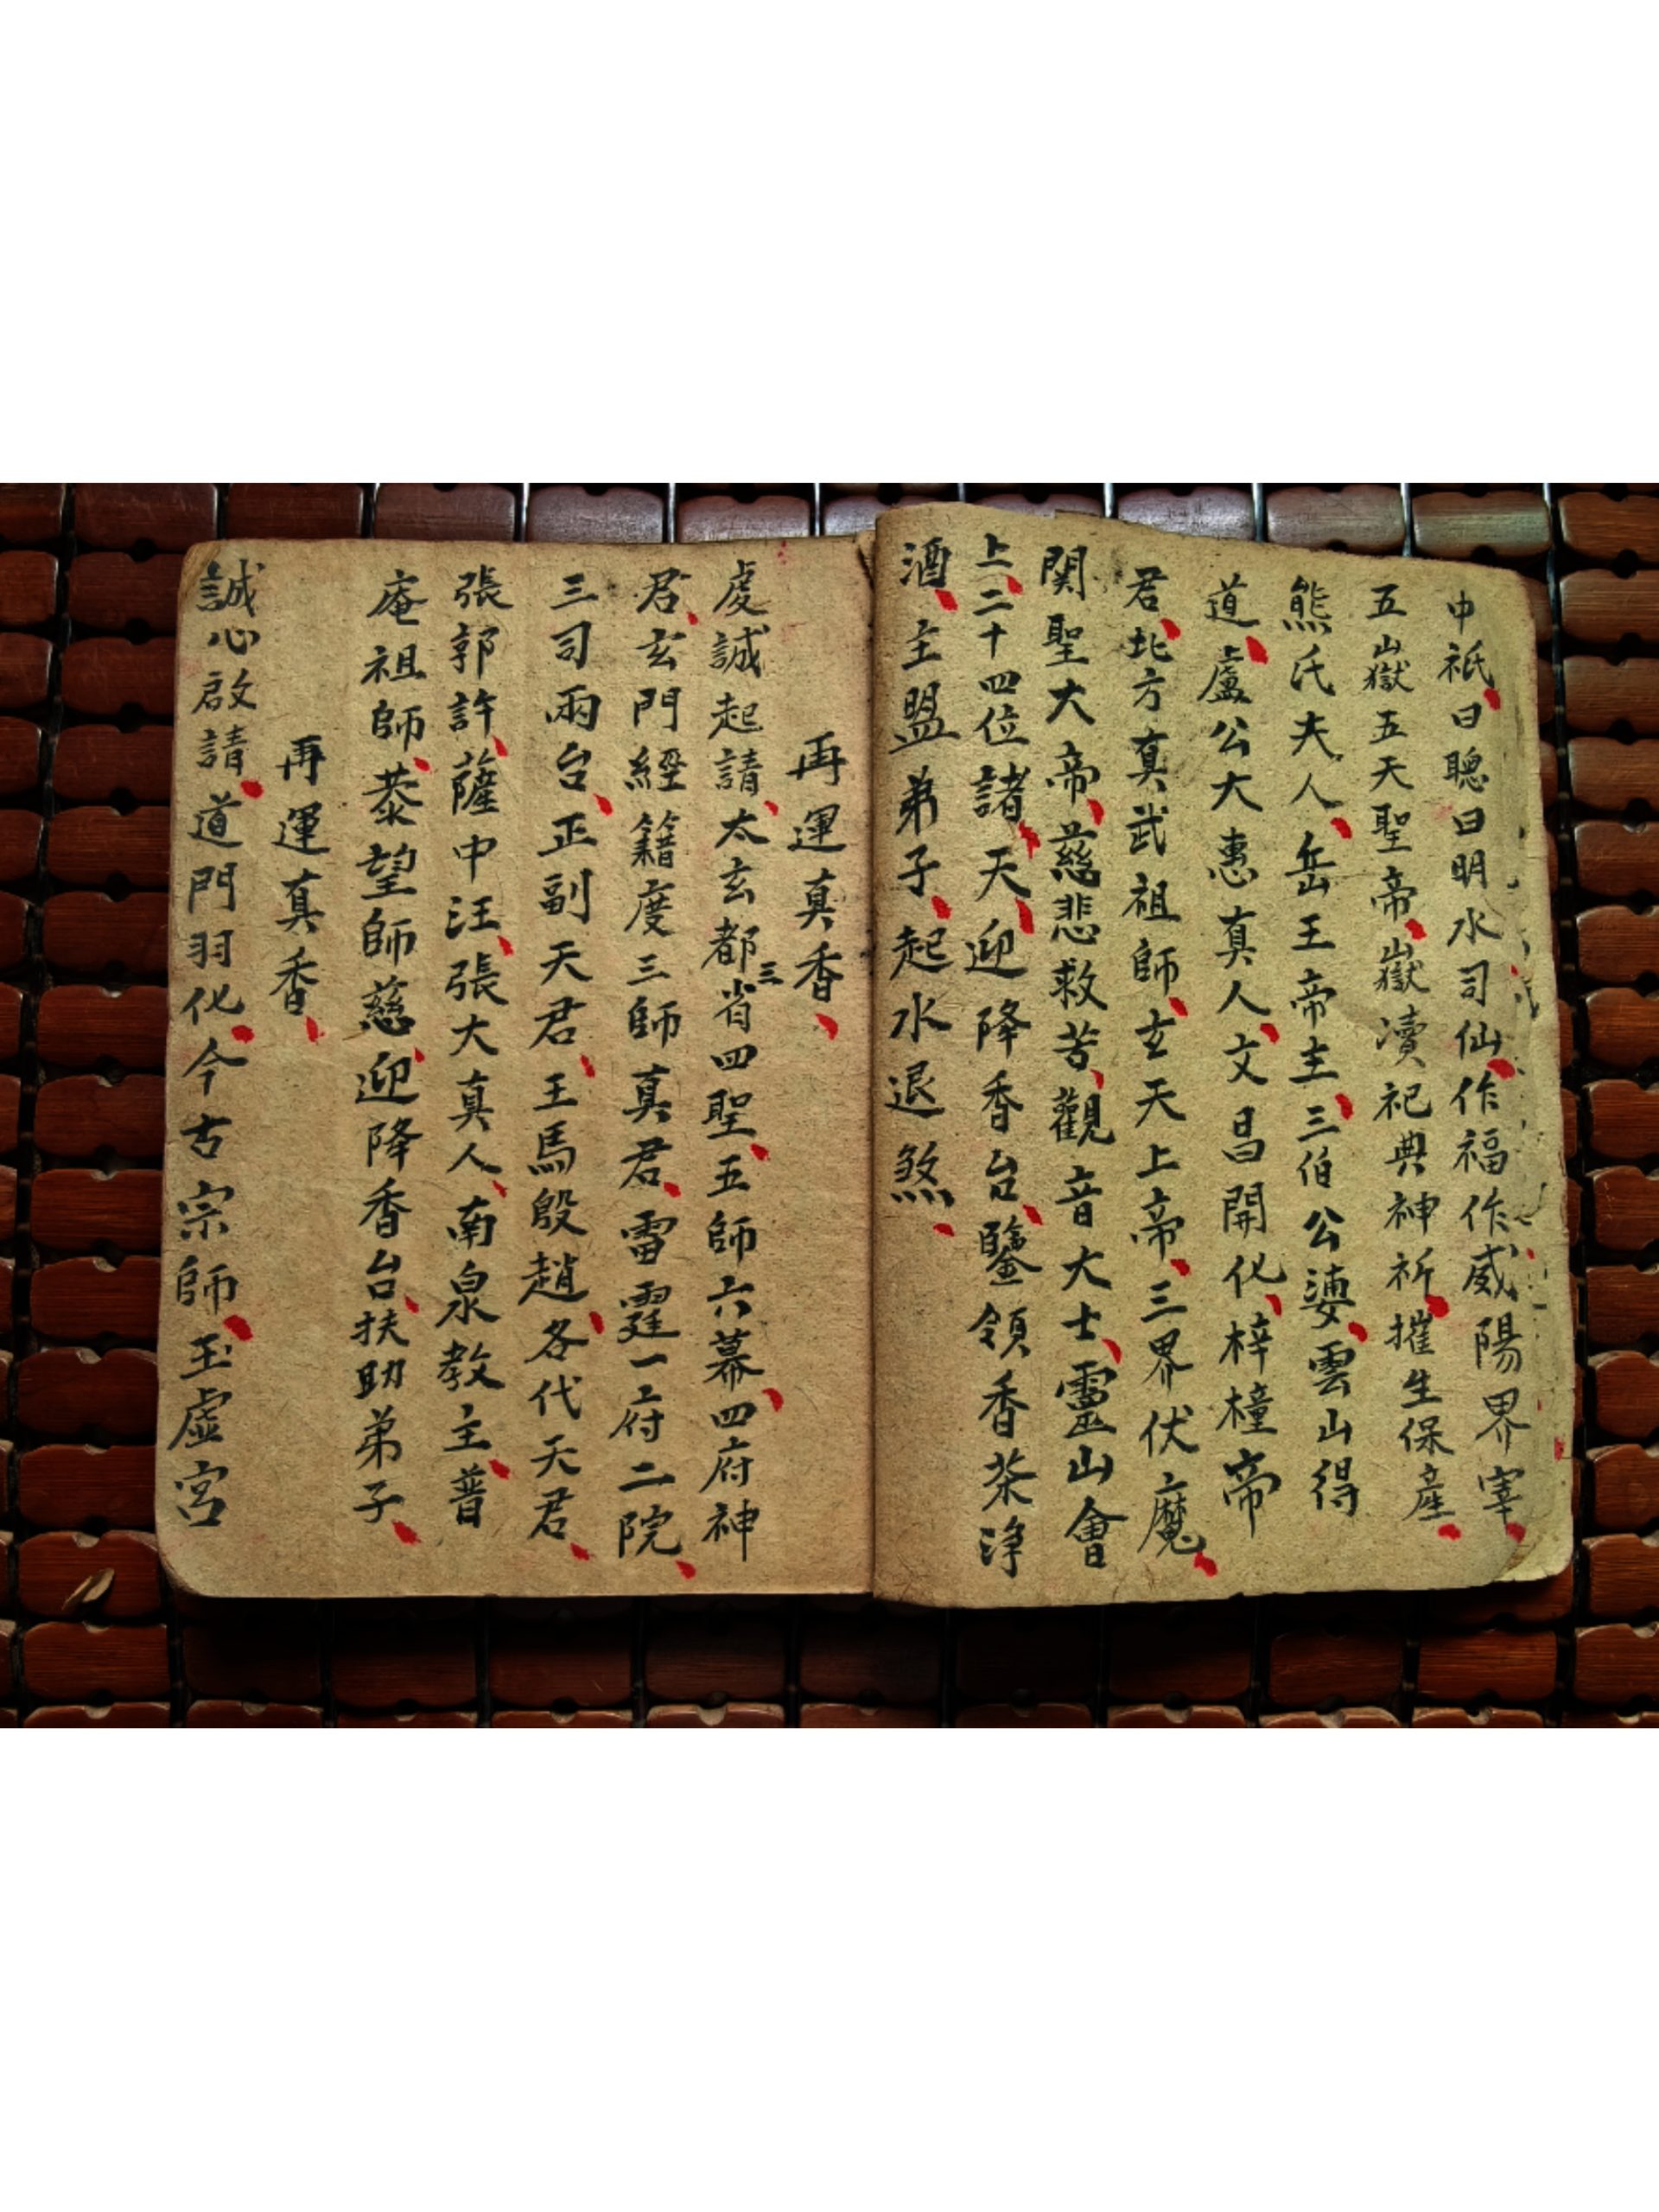 申祇曰聰曰明水司仙作福作威陽界宰
五嶽五天聖帝嶽瀆祀典神祈摧生保產
熊氏夫人岳王帝主三伯公婆雲山得
道盧公大惠真人文昌開化梓橦帝
君北方真武祖師玄天上帝三界伏魔
関聖大帝慈悲救苦觀音大士靈山會
上二十四位諸天迎降香台鑒領香茶净
酒主盟弟子起水退煞
再運真香
虔誠起請太玄都三省四聖五師六幕四府神
君玄門經籍度三師真君雷霆一府二院
三司兩台正副天君王馬殷趙各代天君
張郭許薩中汪張大真人南泉教主普
庵祖師恭望師慈迎降香台扶助弟子
再運真香
誠心啟請道門羽化今古宗師玉虛宮